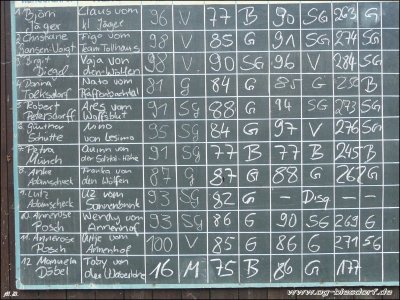 1. Björn Jäger Claus vom kl. Jäger 96 V 77 B 90 SG 263 G
2. Christiane Hansen-Voigt Figo vom Team Tollhaus 98 V 85 G 91 SG 274 SG
3. Birgit Diegel Vaja von den Wölfen 98 V 90 SG 96 V 284 SG
4. Donna Tolksdorf Nato vom Pfaffenbachtal 81 G 84 G 85 G 250 B
5. Robert Petersdorff Ares vom Wolfsblut 91 Sg 88 G 94 SG 273 SG
6. Günther Schütte Nino von Cosimo 95 Sg 84 G 97 V 276 SG
7. Petra Münch Quinn von der Höhe 91 Sg 77 B 77 B 245 B
8. Anke Adamscheck Franka von den Wölfen 87 G 87 G 88 G 262 G
9. Lutz Adamscheck Uz vom Sonnenbrink 93 Sg 82 G - Disq -
10. Annerose Posch Wendy vom Amorhang 93 Sg 86 G 90 SG 269 G
11. Annerose Posch Antje vom Amorhang 100 V 85 G 86 G 271 SG
12. Manuela Döbel Toby von den 16 M 75 B 86 G 177
M.D.
www.og-blasdorf.de